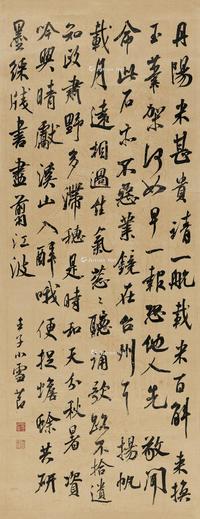 丹陽米甚貴請一航載米百斛來換
玉筆架何如早一報恐他人先敬聞
命此石亦不惡業鏡在台州耳揚帆
載月遠相過佳氣葱〻聽誦歌路不拾遺
知政肅野多滯穗是時和天分秋暑資
吟興晴獻溪山入醉哦便捉蟾蜍共研
墨綵牋書盡剪江波
壬子小雪